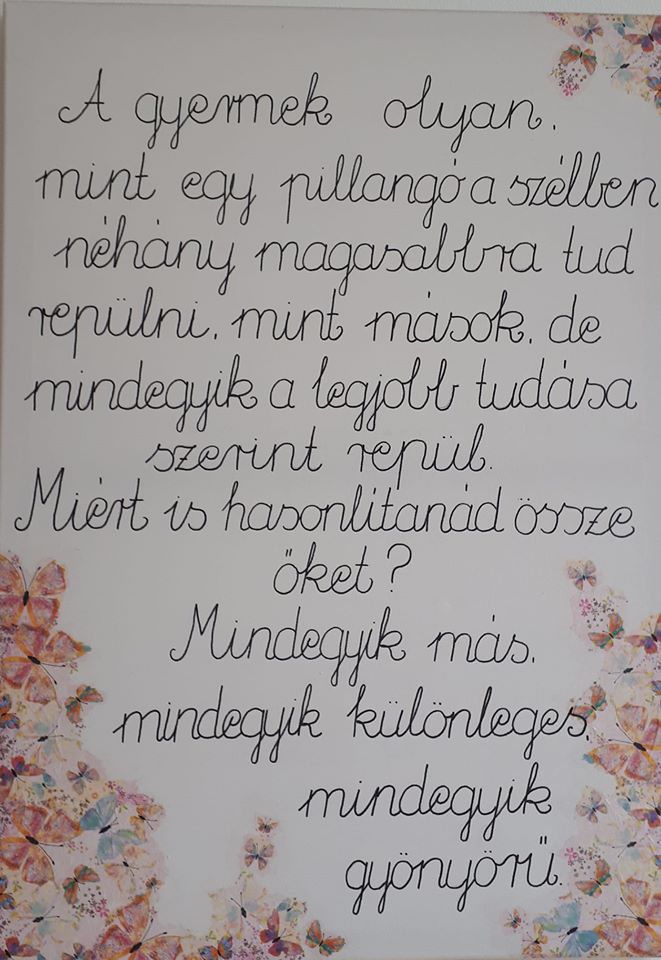 A gyermek olyan,
mint egy pillangó a szélben
néhány magasabbra tud
repülni, mint mások, de
mindegyik a legjobb tudása
szerint repül.
Miért is hasonlítanád össze
őket?
Mindegyik más,
mindegyik különleges,
mindegyik
gyönyörű.